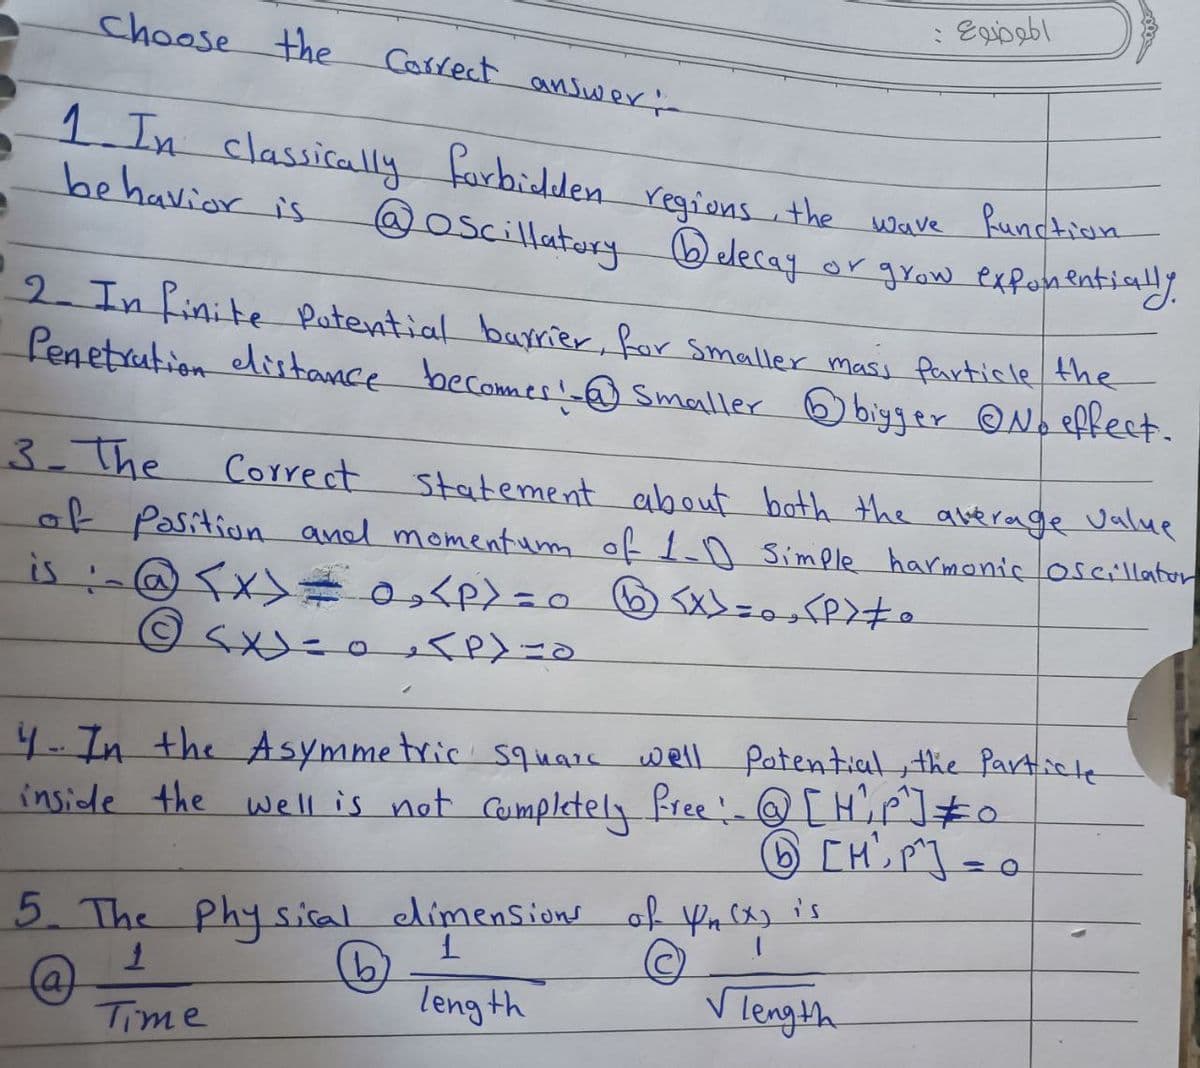 الموضوع :
Choose the Correct answer:-
1- In classically forbidden regions, the wave function
behavior is ⓐ oscillatory ⓑ decay or grow exponentially.
2- In finite potential barrier, for smaller mass particle the
Penetration distance becomes:- ⓐ Smaller ⓑ bigger ⓒ No effect.
3- The Correct statement about both the average value
of position and momentum of 1-D Simple harmonic oscillator
is :- ⓐ <x> ≠ 0, <p> = 0 ⓑ <x> = 0, <P> ≠ 0
ⓒ <x> = 0, <P> = 0
4- In the Asymmetric square well Potential, the Particle
inside the well is not Completely free:- ⓐ [H^, p^] ≠ 0
ⓑ [H^, p^] = 0
5- The physical dimensions of ψn(x) is
ⓐ 1/Time ⓑ 1/length ⓒ 1/√length